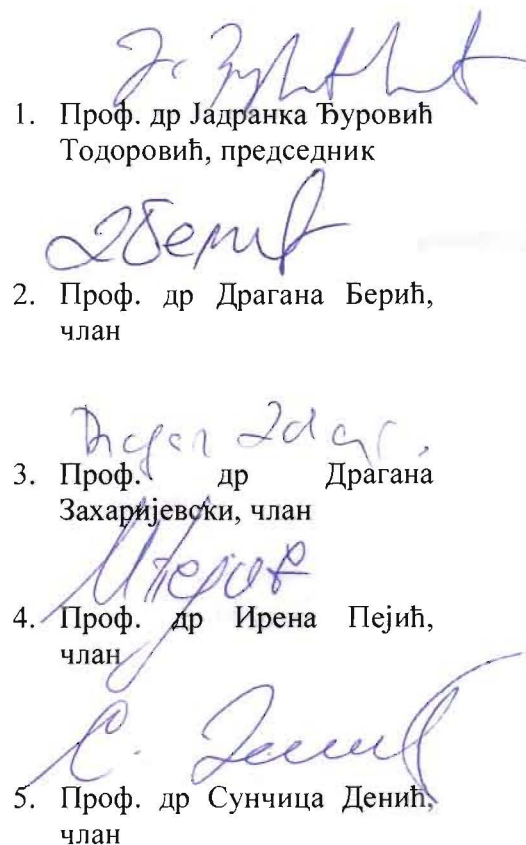 1. Проф. др Јадранка Ђуровић
Тодоровић, председник
2. Проф. др Драгана Берић,
члан
3. Проф. др Драгана
Захаријевски, члан
4. Проф. др Ирена Пејић,
члан
С. Денић
5. Проф. др Сунчица Денић,
члан